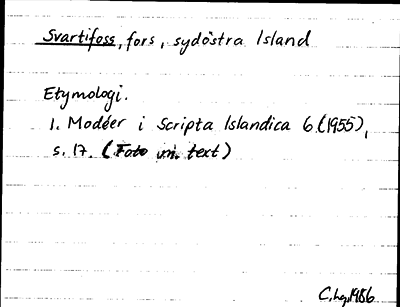 Svartifoss, fors, sydöstra Island
Etymologi.
1. Modéer i Scripta Islandica 6 (1955),
s. 17. (Foto m. text)
1986